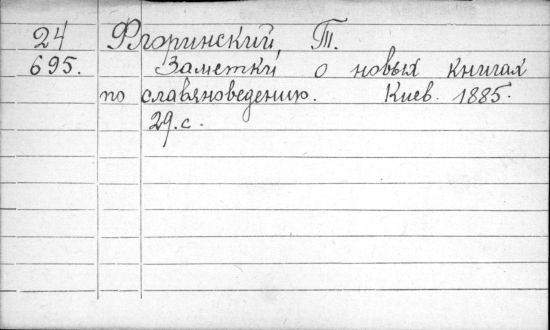 24 Флоринский, Т.
695. Заметки о новых книгах
по славяноведению. Киев. 1885.
29.с.